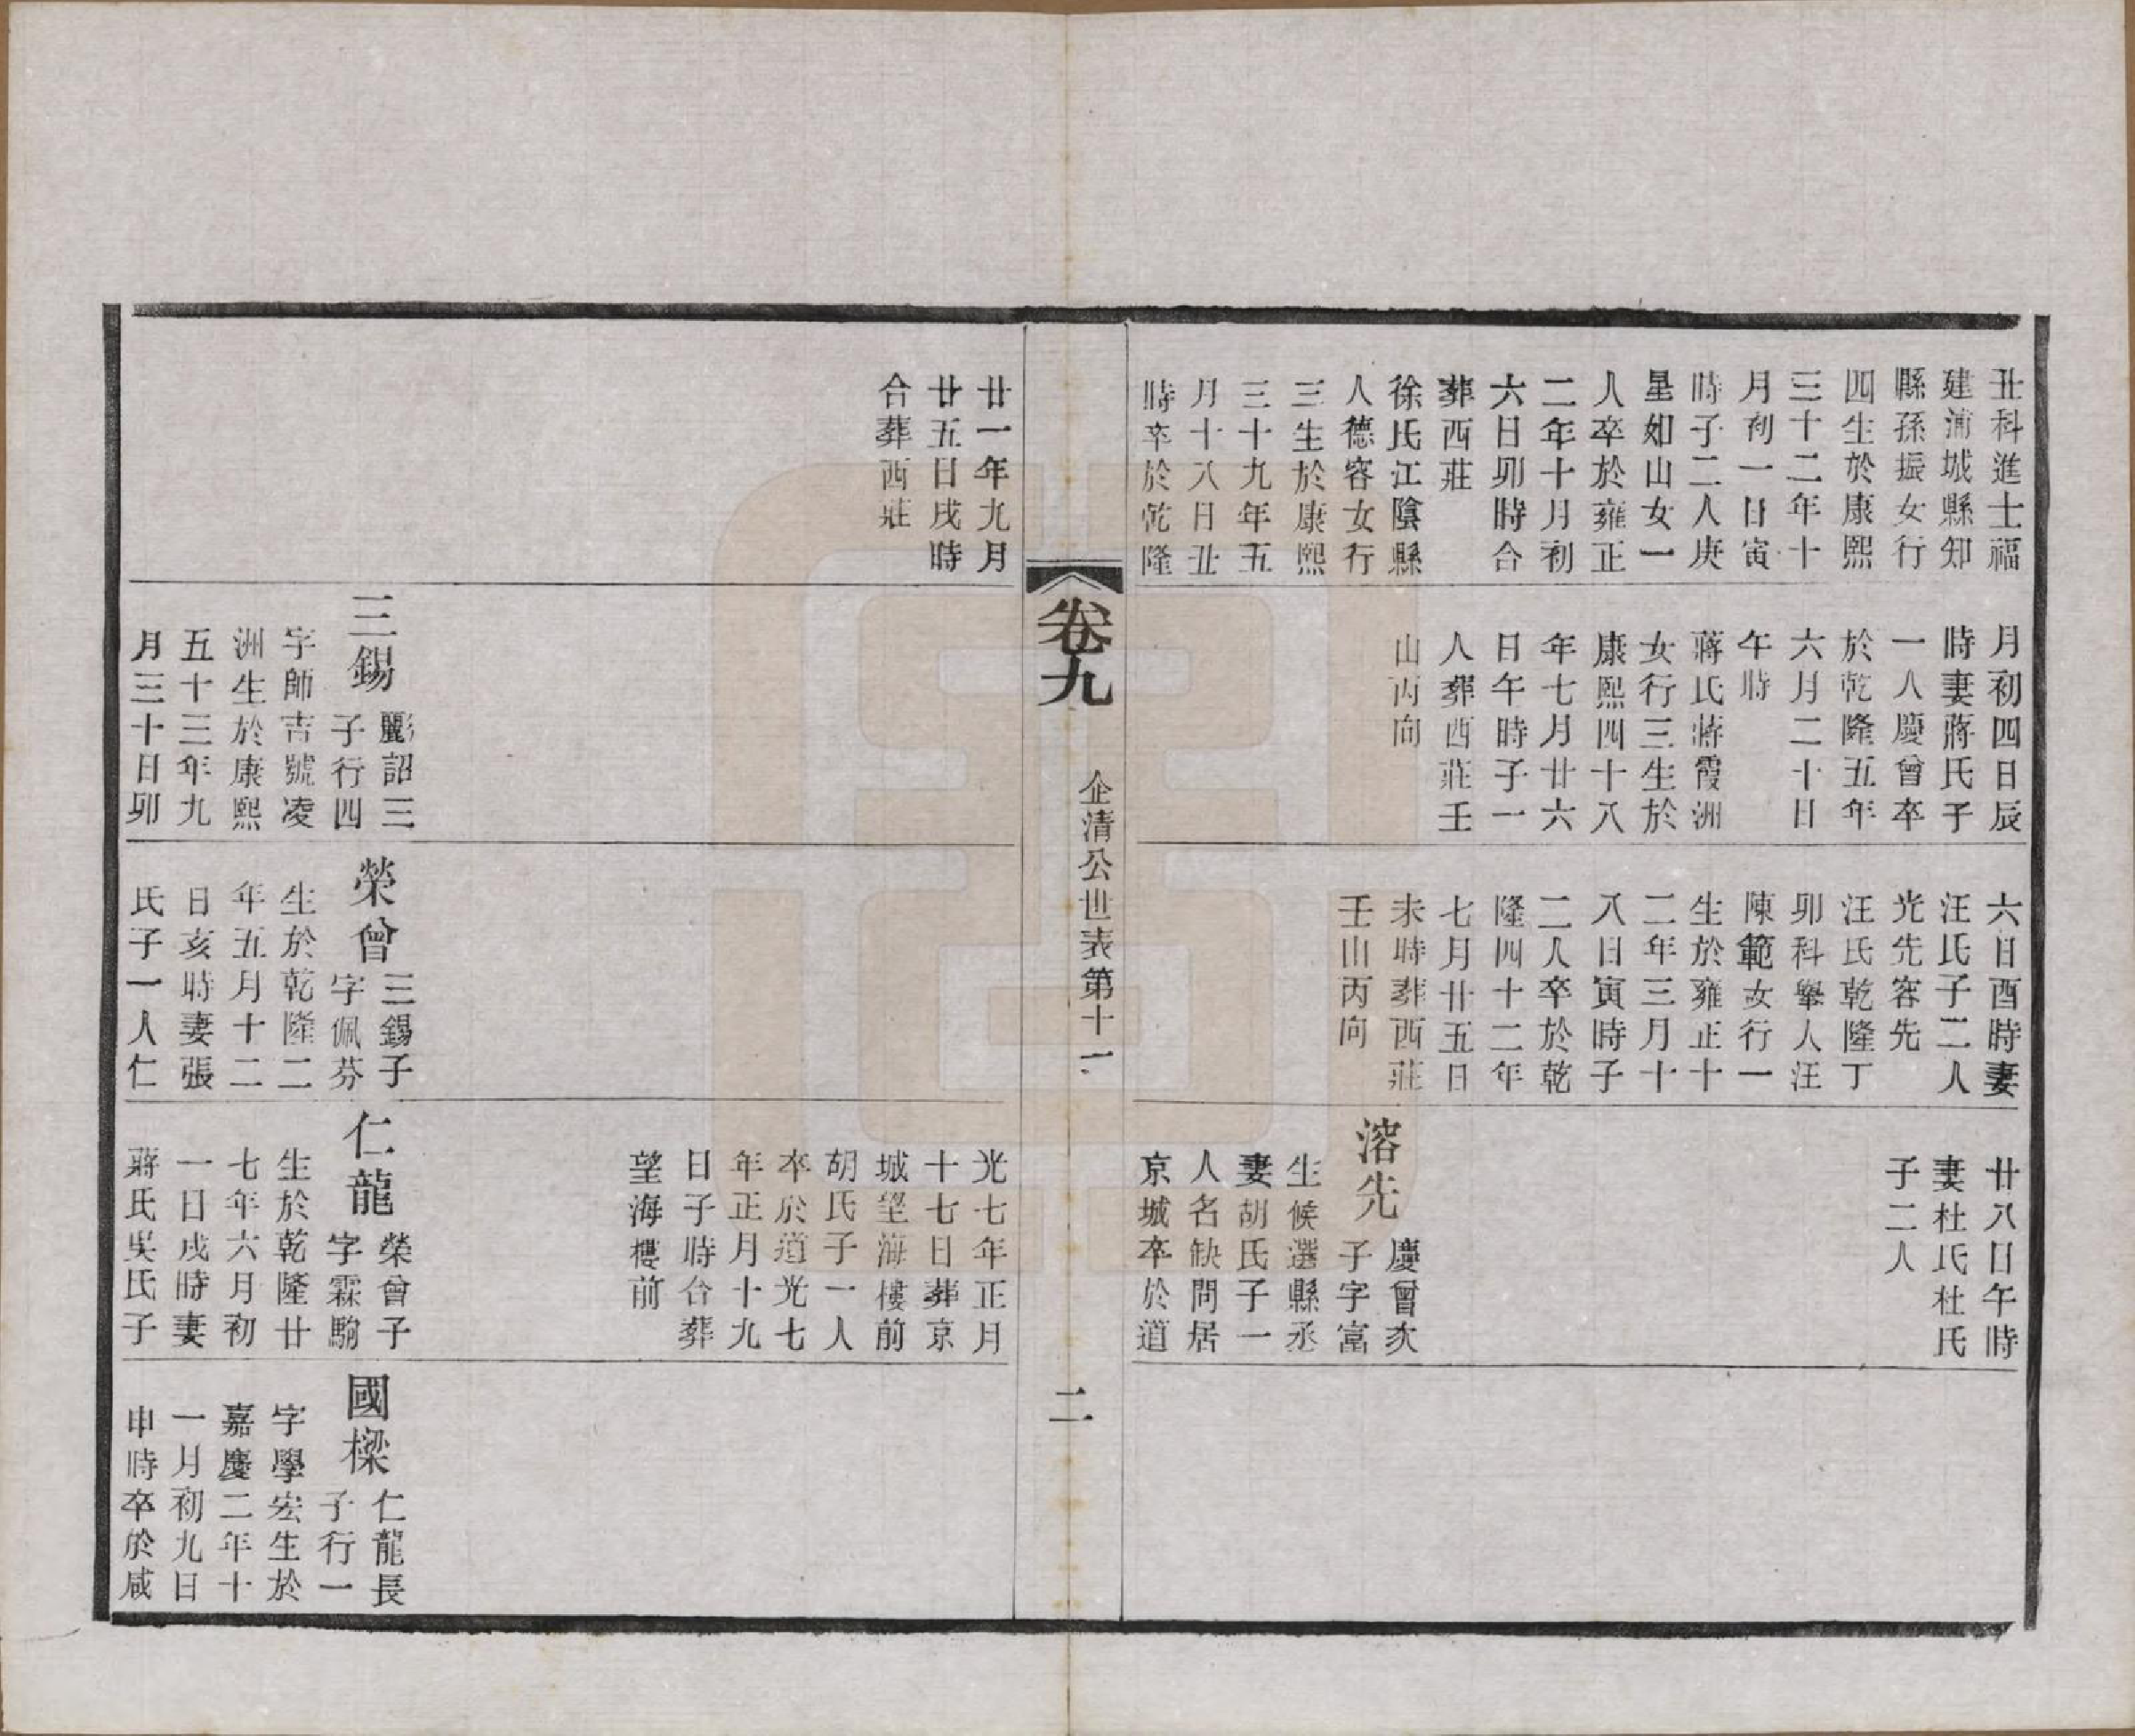 丑科進士福
建浦城縣知
縣孫振女行
四生於康熙
三十二年十
月初一日寅
時子二人庚
星如山女一
人卒於雍正
二年十月初
六日卯時合
葬西莊
徐氏江陰縣
人德容女行
三生於康熙
三十九年五
月十八日丑
時卒於乾隆
月初四日辰
時妻蔣氏子
一人慶曾卒
於乾隆五年
六月二十日
午時
蔣氏蔣霞洲
女行三生於
康熙四十八
年七月廿六
日午時子一
人葬西莊壬
山丙向
六日酉時妻
汪氏子二人
光先容先
汪氏乾隆丁
卯科舉人汪
陳範女行一
生於雍正十
二年三月十
八日寅時子
二人卒於乾
隆四十二年
七月廿五日
未時葬西莊
壬山丙向
廿八日午時
妻杜氏杜氏
子二人
溶先
慶曾次
子字富
生候選縣丞
妻胡氏子一
人名缺問居
京城卒於道
卷九
企清公世表第十一
二
廿一年九月
廿五日戌時
合葬西莊
三錫
彲詔三
子行四
字師吉號凌
洲生於康熙
五十三年九
月三十日卯
榮曾
三錫子
字佩芬
生於乾隆二
年五月十二
日亥時妻張
氏子一人仁
光七年正月
十七日葬京
城望海樓前
胡氏子一人
卒於道光七
年正月十九
日子時合葬
望海樓前
仁龍
榮曾子
字霖駒
生於乾隆廿
七年六月初
一日戌時妻
蔣氏吳氏子
國樑
仁龍長
子行一
字學宏生於
嘉慶二年十
一月初九日
申時卒於咸